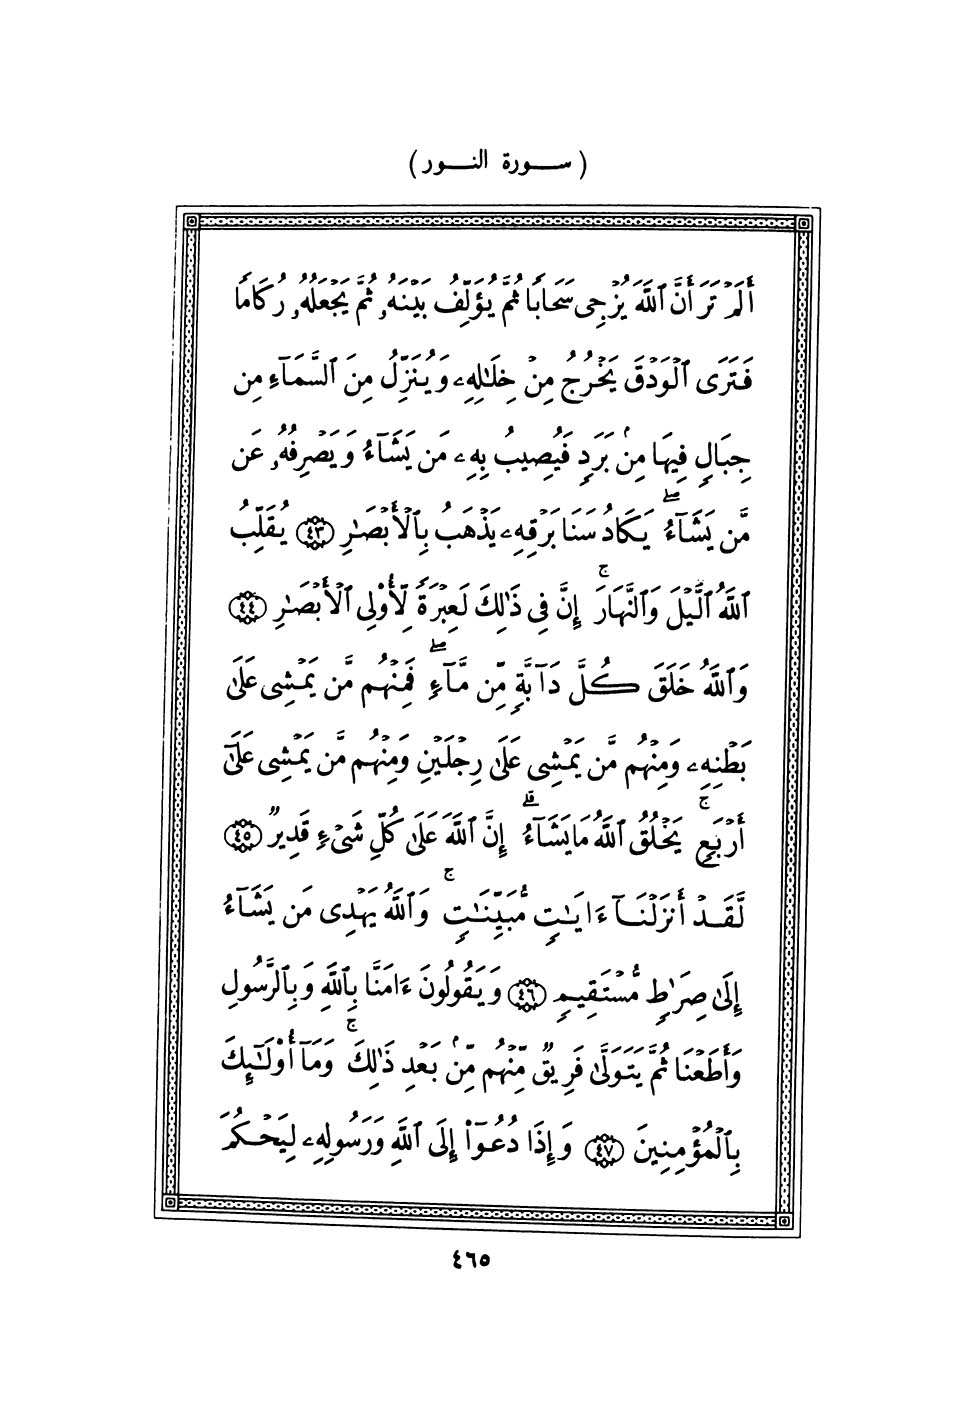 ( ســورة النــور )
أَلَمْ تَرَ أَنَّ ٱللَّهَ يُزْجِى سَحَابًا ثُمَّ يُؤَلِّفُ بَيْنَهُۥ ثُمَّ يَجْعَلُهُۥ رُكَامًا
فَتَرَى ٱلْوَدْقَ يَخْرُجُ مِنْ خِلَـٰلِهِۦ وَيُنَزِّلُ مِنَ ٱلسَّمَآءِ مِن
جِبَالٍ فِيهَا مِنۢ بَرَدٍ فَيُصِيبُ بِهِۦ مَن يَشَآءُ وَيَصْرِفُهُۥ عَن
مَّن يَشَآءُ ۖ يَكَادُ سَنَا بَرْقِهِۦ يَذْهَبُ بِٱلْأَبْصَـٰرِ ﴿٤٣﴾ يُقَلِّبُ
ٱللَّهُ ٱلَّيْلَ وَٱلنَّهَارَ ۚ إِنَّ فِى ذَٰلِكَ لَعِبْرَةً لِّأُو۟لِى ٱلْأَبْصَـٰرِ ﴿٤٤﴾
وَٱللَّهُ خَلَقَ كُلَّ دَآبَّةٍ مِّن مَّآءٍ ۖ فَمِنْهُم مَّن يَمْشِى عَلَىٰ
بَطْنِهِۦ وَمِنْهُم مَّن يَمْشِى عَلَىٰ رِجْلَيْنِ وَمِنْهُم مَّن يَمْشِى عَلَىٰٓ
أَرْبَعٍ ۚ يَخْلُقُ ٱللَّهُ مَا يَشَآءُ ۗ إِنَّ ٱللَّهَ عَلَىٰ كُلِّ شَىْءٍ قَدِيرٌ ﴿٤٥﴾
لَّقَدْ أَنزَلْنَآ ءَايَـٰتٍ مُّبَيِّنَـٰتٍ ۚ وَٱللَّهُ يَهْدِى مَن يَشَآءُ
إِلَىٰ صِرَٰطٍ مُّسْتَقِيمٍ ﴿٤٦﴾ وَيَقُولُونَ ءَامَنَّا بِٱللَّهِ وَبِٱلرَّسُولِ
وَأَطَعْنَا ثُمَّ يَتَوَلَّىٰ فَرِيقٌ مِّنْهُم مِّنۢ بَعْدِ ذَٰلِكَ ۚ وَمَآ أُو۟لَـٰٓئِكَ
بِٱلْمُؤْمِنِينَ ﴿٤٧﴾ وَإِذَا دُعُوٓا۟ إِلَى ٱللَّهِ وَرَسُولِهِۦ لِيَحْكُمَ
٤٦٥